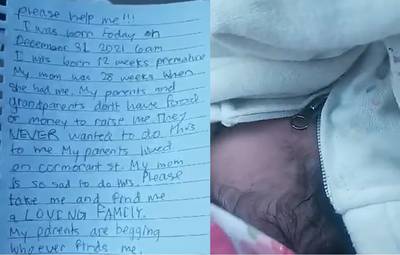 please help me!!!
I was born today on
December 31 2021 6am
I was born 12 weeks premature
My mom was 28 weeks when
she had me. My parents and
grandparents dont have food
or money to raise me. They
NEVER wanted to do this
to me My parents lived
on cormorant st. My mom
is so sad to do this. Please
take me and find me
a LOVING FAMILY.
My parents are begging
whoever finds me.